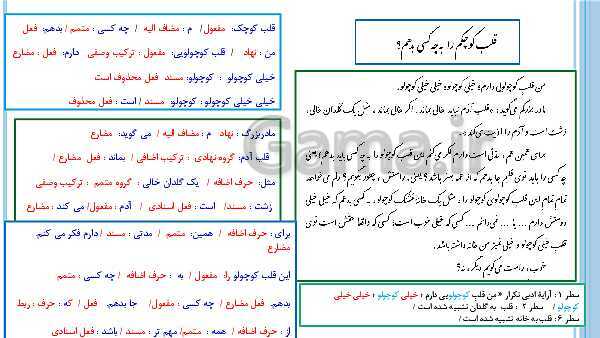 قلب کوچکم را به چه کسی بدهم؟
من قلب کوچولویی دارم؛ خیلی کوچولو؛ خیلی خیلی کوچولو.
مادربزرگم می‌گوید: «قلب آدم نباید خالی بماند. اگر خالی بماند، مثل یک گلدان خالی،
زشت است و آدم را اذیت می‌کند.»
برای همین هم، مدتی است دارم فکر می‌کنم این قلب کوچولو را به چه کسی باید بدهم؛ یعنی
چه کسی را باید توی قلبم جا بدهم که از همه بهتر باشد؟ یعنی، راستش، چطور بگویم؟ دلم می‌خواهد
تمام تمام این قلب کوچولوی کوچولو را، مثل یک خانهٔ قشنگ کوچولو، به کسی بدهم که خیلی خیلی
دوستش دارم ... یا ... نمی‌دانم ... کسی که خیلی خوب است؛ کسی که واقعاً حقش است توی
قلب خیلی کوچولو و خیلی تمیز من خانه داشته باشد.
خوب، راست می‌گویم دیگر، نه؟
سطر ۱: آرایهٔ ادبی تکرار * من قلب کوچولویی دارم ؛ خیلی کوچولو ؛ خیلی خیلی
کوچولو / سطر ۲ : قلب به گلدان تشبیه شده است /
سطر ۶: قلب به خانه تشبیه شده است /
قلب کوچک: مفعول/ م : مضاف الیه / چه کسی : متمم / بدهم: فعل
من : نهاد / قلب کوچولویی: مفعول : ترکیب وصفی دارم: فعل : مضارع
خیلی کوچولو : کوچولو: مسند فعل محذوف است
خیلی خیلی کوچولو: کوچولو: مسند / است : فعل محذوف
مادربزرگ : نهاد م : مضاف الیه / می گوید: مضارع
قلب آدم: گروه نهادی : ترکیب اضافی / بماند : فعل مضارع /
مثل: حرف اضافه / یک گلدان خالی : گروه متمم : ترکیب وصفی
زشت : مسند/ است: فعل اسنادی / آدم : مفعول/ می کند : مضارع
برای : حرف اضافه / همین: متمم / مدتی : مسند / دارم فکر می کنم
مضارع
این قلب کوچولو را: مفعول / به : حرف اضافه / چه کسی : متمم
بدهم: فعل مضارع / چه کسی : مفعول/ جا بدهم: فعل / که : حرف : ربط
از : حرف اضافه / همه : متمم / مهم تر : مسند / باشد: فعل اسنادی
Gama.ir